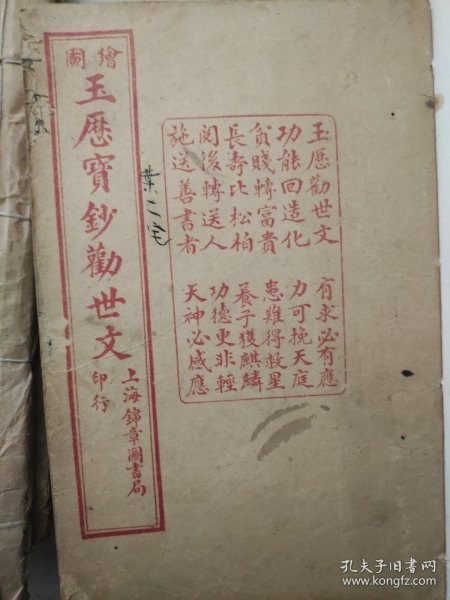 繪圖
玉歷寶鈔勸世文
上海錦章圖書局
印行
葉二宅
玉歷勸世文 有求必有應
功能回造化 力可挽天庭
貧賤轉富貴 患難得救星
長壽比松柏 養子獲麒麟
閱後轉送人 功德更非輕
施送善書者 天神必感應
孔夫子旧书网
www.kongfz.com